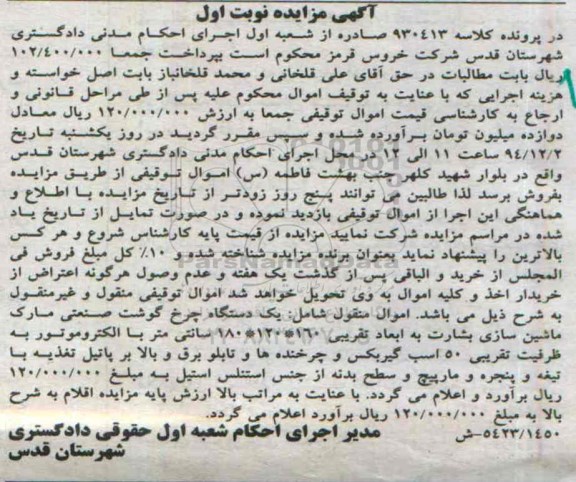 آگهی مزایده نوبت اول
در پرونده کلاسه ۹۳۰۴۱۳ صادره از شعبه اول اجرای احکام مدنی دادگستری
شهرستان قدس شرکت خروس قرمز محکوم است بپرداخت جمعا ۱۰۲/۴۰۰/۰۰۰
ریال بابت مطالبات در حق آقای علی قلخانی و محمد قلخانباز بابت اصل خواسته و
هزینه اجرایی که با عنایت به توقیف اموال محکوم علیه پس از طی مراحل قانونی و
ارجاع به کارشناسی قیمت اموال توقیفی جمعا به ارزش ۱۲۰/۰۰۰/۰۰۰ ریال معادل
دوازده میلیون تومان برآورده شده و سپس مقرر گردید در روز یکشنبه تاریخ
۹۴/۱۲/۲ ساعت ۱۱ الی ۱۲ در محل اجرای احکام مدنی دادگستری شهرستان قدس
واقع در بلوار شهید کلهر جنب بهشت فاطمه (س) اموال توقیفی از طریق مزایده
بفروش برسد لذا طالبین می توانند پنج روز زودتر از تاریخ مزایده با اطلاع و
هماهنگی این اجرا از اموال توقیفی بازدید نموده و در صورت تمایل از تاریخ یاد
شده در مراسم مزایده شرکت نمایید مزایده از قیمت پایه کارشناس شروع و هر کس
بالاترین را پیشنهاد نماید بعنوان برنده مزایده شناخته شده و ۱۰٪ کل مبلغ فروش فی
المجلس از خرید و الباقی پس از گذشت یک هفته و عدم وصول هرگونه اعتراض از
خریدار اخذ و کلیه اموال به وی تحویل خواهد شد اموال توقیفی منقول و غیرمنقول
به شرح ذیل می باشد. اموال منقول شامل: یک دستگاه چرخ گوشت صنعتی مارک
ماشین سازی بشارت به ابعاد تقریبی ۱۶۰*۱۲۰*۱۸۰ سانتی متر با الکتروموتور به
ظرفیت تقریبی ۵۰ اسب گیربکس و چرخنده ها و تابلو برق و بالا بر پاتیل تغذیه با
تیغه و پنجره و مارپیچ و سطح بدنه از جنس استنلس استیل به مبلغ ۱۲۰/۰۰۰/۰۰۰
ریال برآورد و اعلام می گردد. با عنایت به مراتب بالا ارزش پایه مزایده اقلام به شرح
بالا به مبلغ ۱۲۰/۰۰۰/۰۰۰ ریال برآورد اعلام می گردد.
۵۴۲۳/۱۴۵۰-ش مدیر اجرای احکام شعبه اول حقوقی دادگستری
شهرستان قدس